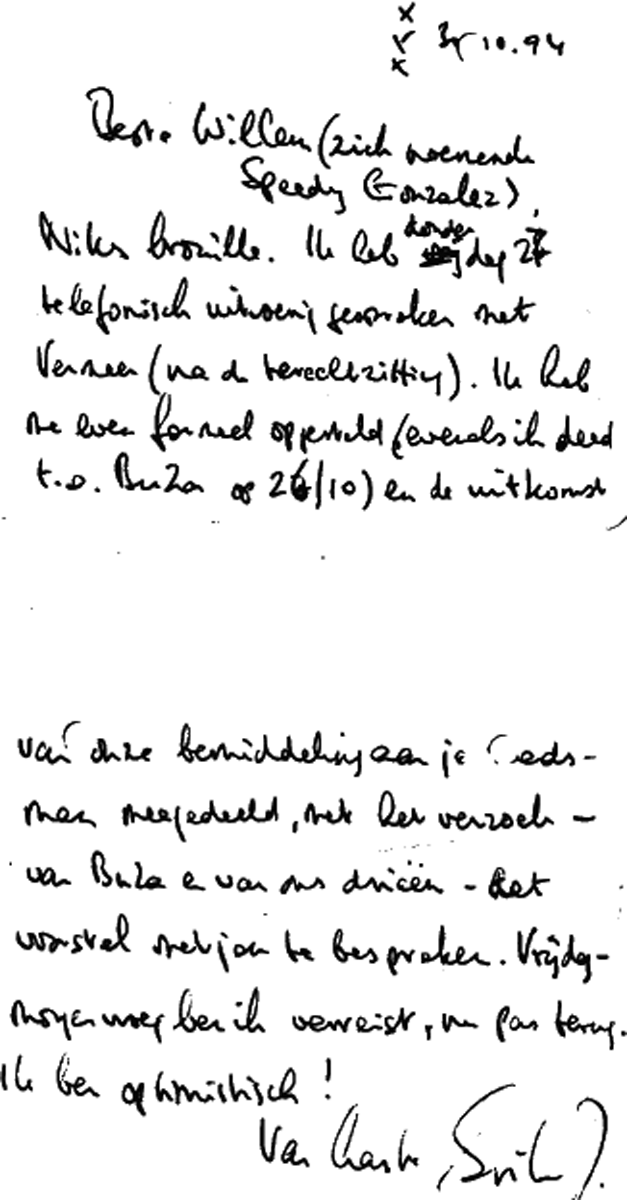 x
x
x
31.10.94
Beste Willem (zich noemende
Speedy Gonzalez),
Niks brouille. Ik heb donderdag 27
telefonisch uitvoerig gesproken met
Vermeer (na de terechtzitting). Ik heb
me even formeel opgesteld (evenals ik deed
t.o. BuZa op 26/10) en de uitkomst
van onze bemiddeling aan je
man meegedeeld, met het verzoek –
van BuZa en van ons drieën – het
voorstel met jou te bespreken. Vrijdag-
morgen vroeg ben ik verreisd, nu pas terug.
Ik ben optimistisch!
Van harte,